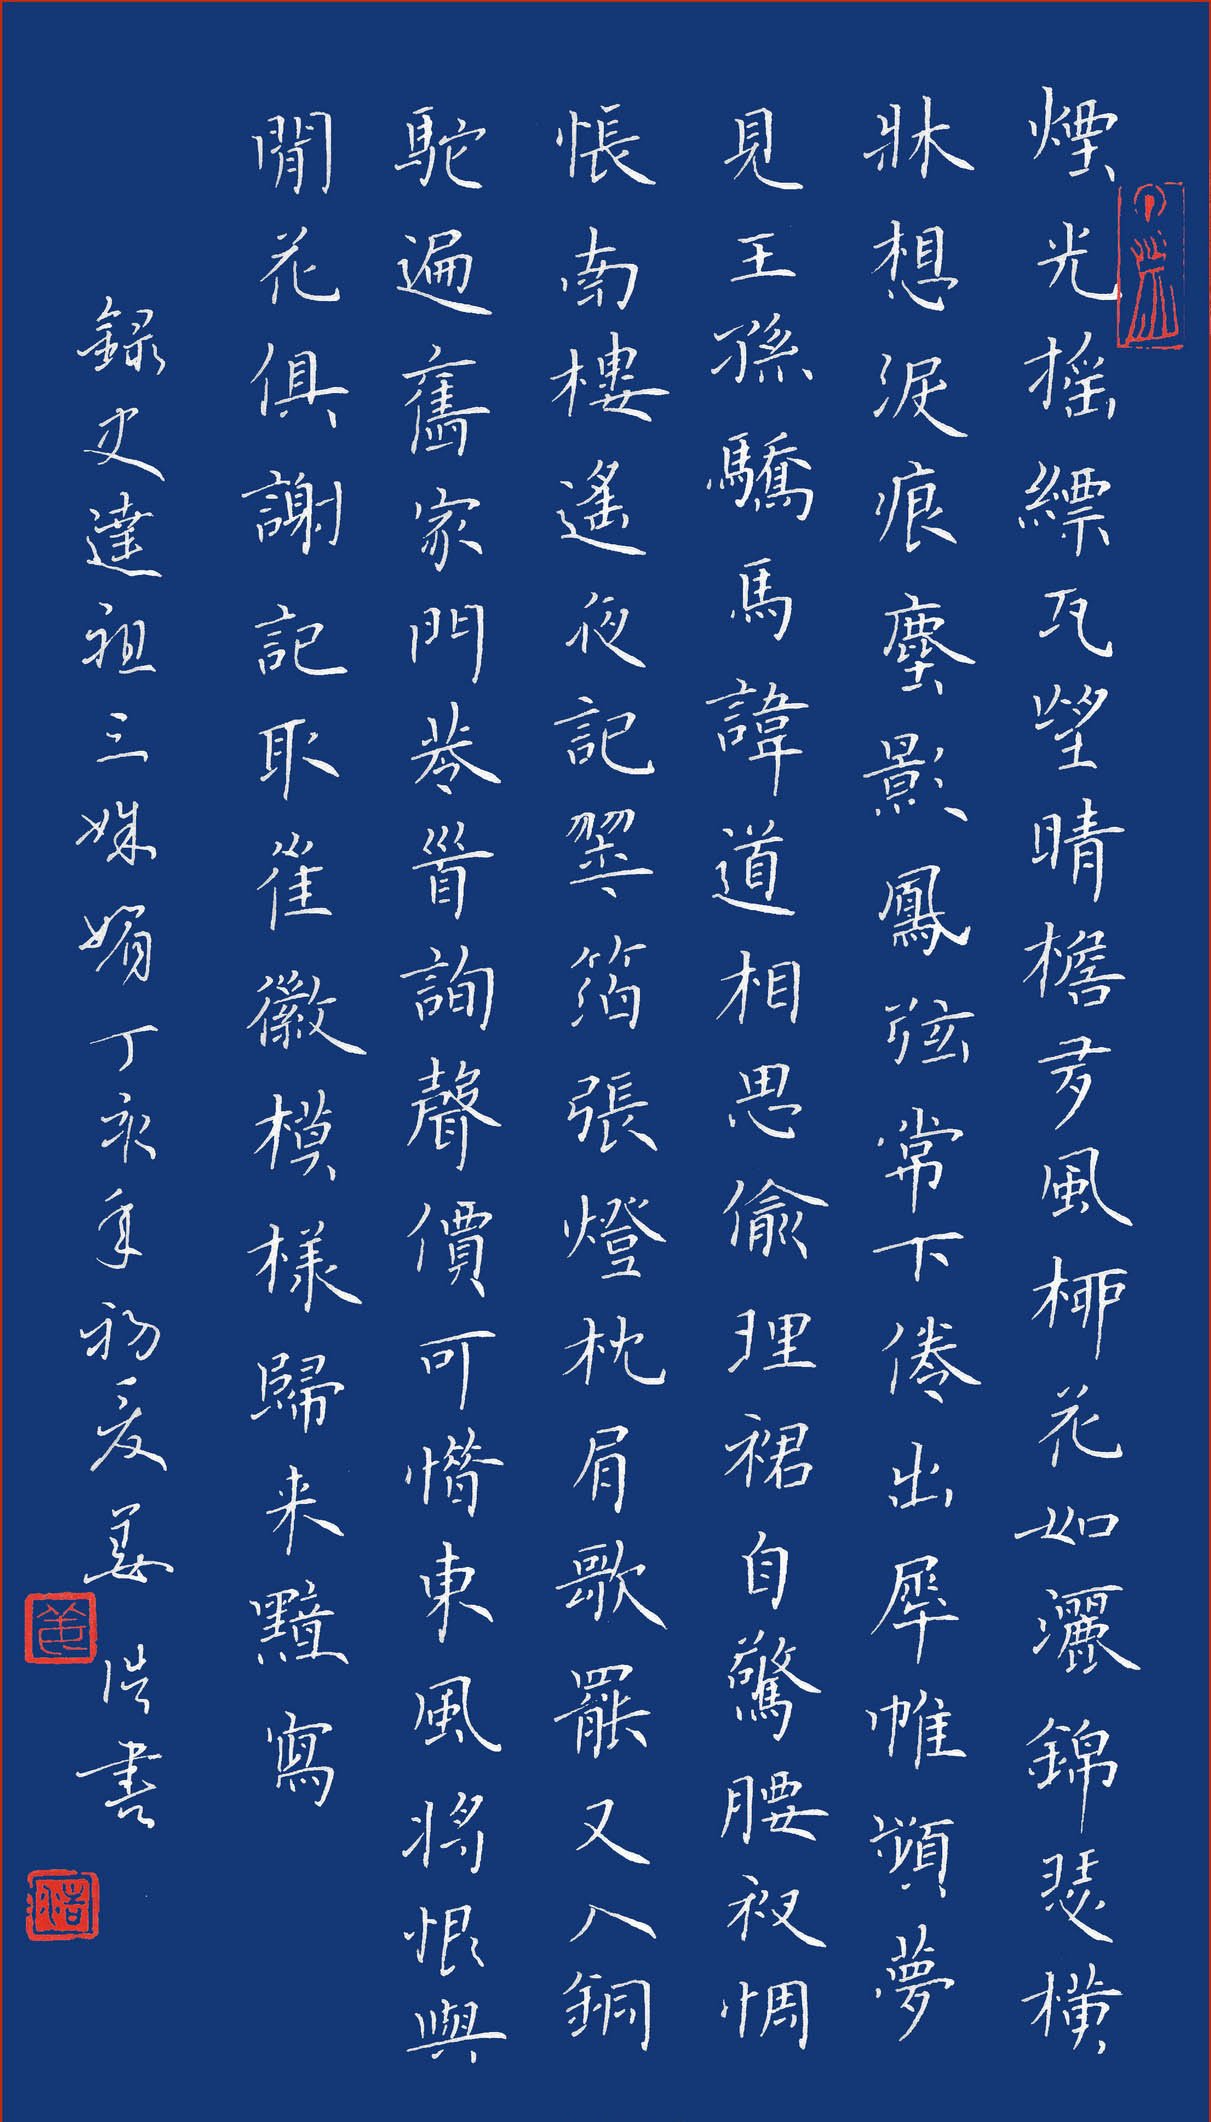 煙光摇縹瓦望晴檐多風柳花如灑錦瑟横
牀想淚痕塵影鳳弦常下倦出犀帷頻夢
見王孫驕馬諱道相思偷理裙自驚腰衩惆
悵南樓遥夜記翠箔張燈枕肩歌罷又入銅
駝遍舊家門巷首詢聲價可惜東風將恨與
閒花俱謝記取崔徽模樣歸来黯寫
録史達祖三姝媚丁亥年初夏姜浩書